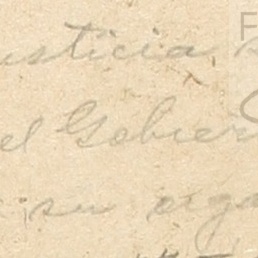 usticia
el Gobier
su orga